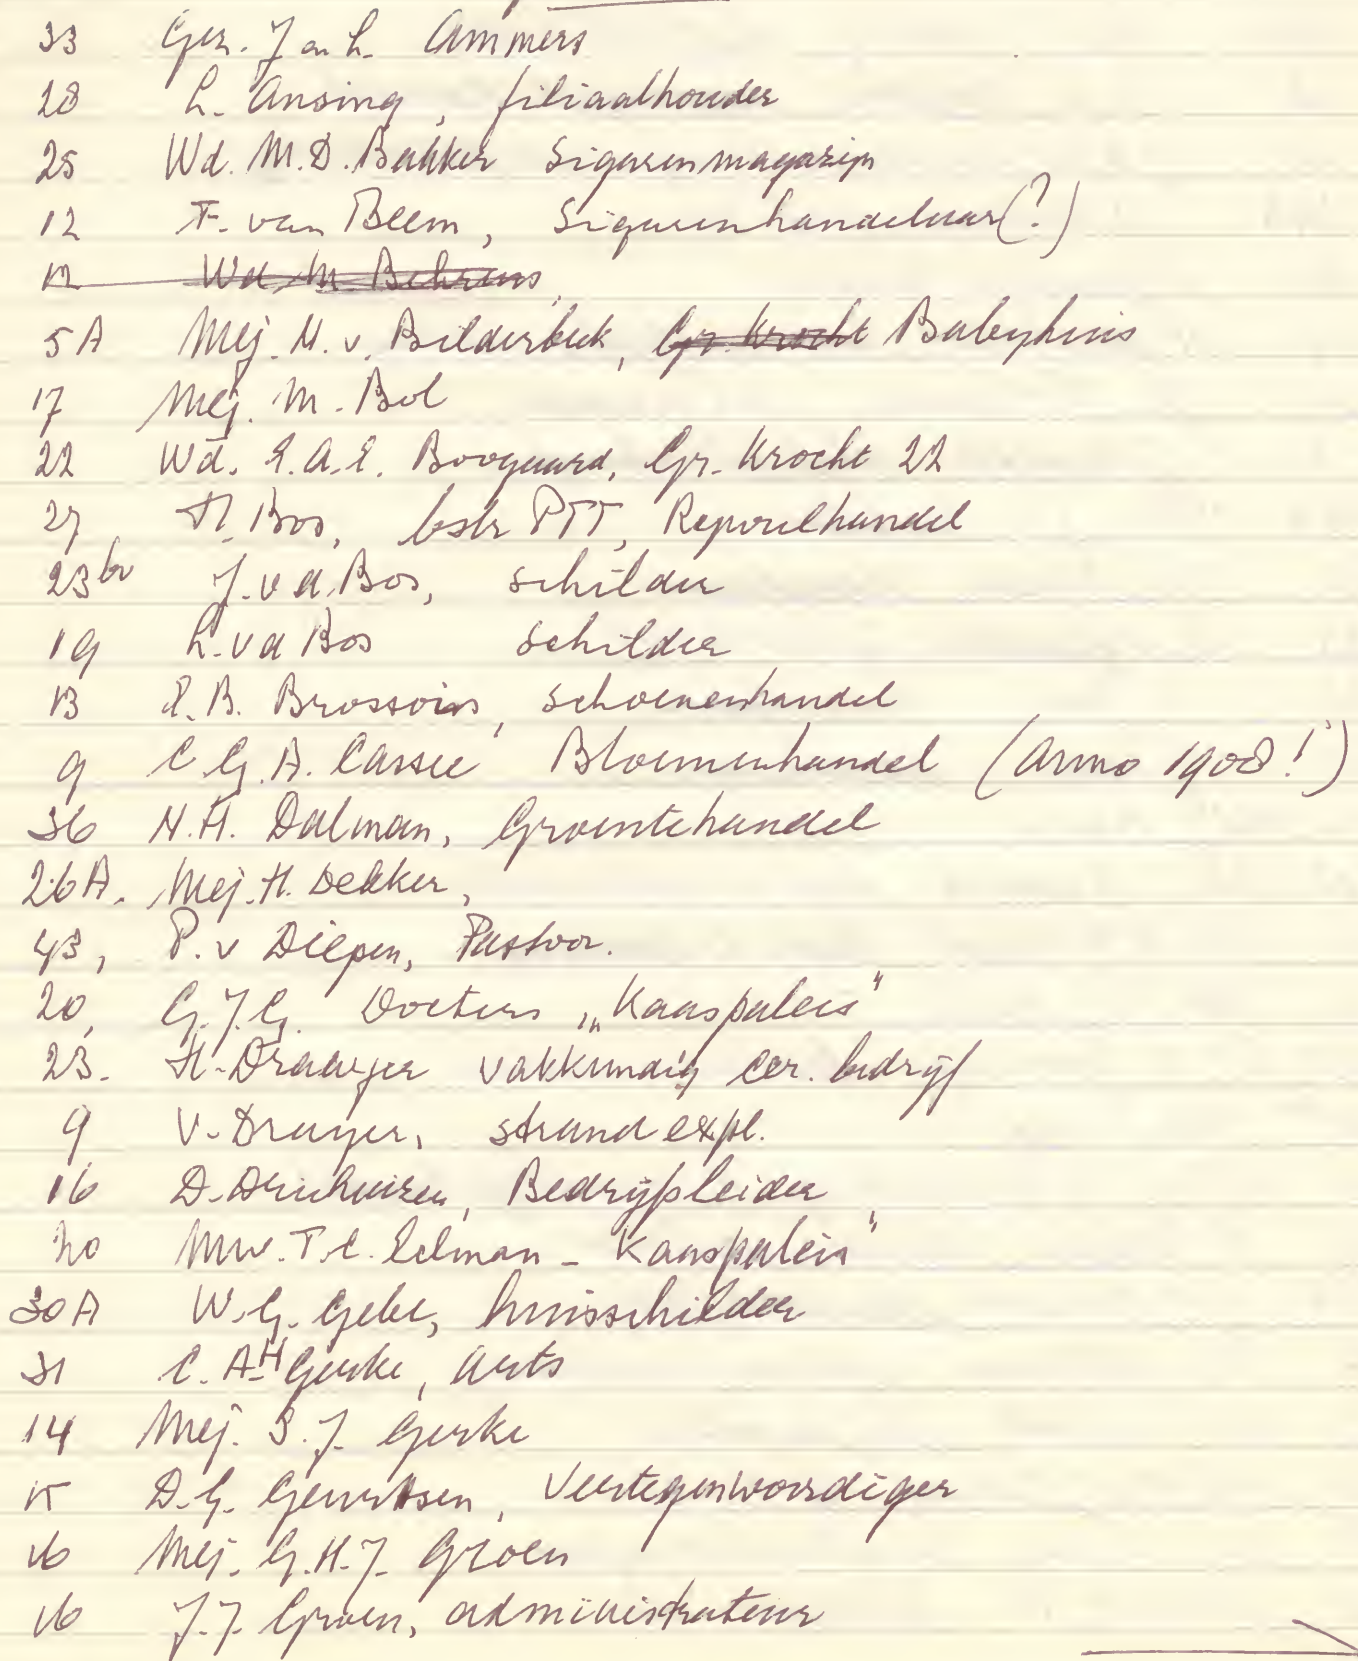 33 Gez. J en L. Ammers
28 L. Ansing, filiaalhouder
25 Wd. M.D. Bakker Sigarenmagazijn
12 F. van Beem, Sigarenhandelaar(?)
12 Wd. M. Behrens,
5A Mej. M. v. Bilderbeek, Gr. Krocht Babyhuis
17 Mej. M. Bol
22 Wd. E.A.E. Boogaard, Gr. Krocht 22
27 H. Bos, bstr PTT,
23 J. v.d. Bos, schilder
19 L. v d Bos schilder
13 P.B. Brossois, schoenenhandel
9 C.G.A. Cassee Bloemenhandel (anno 1908!)
36 N.H. Dalman, Groentehandel
26A. Mej. H. Dekker,
43, P. v Diepen, Pastoor.
20, G.J.G. Doeters „Kaaspaleis"
23. H. Draayer vakkundig cer. bedrijf
9 V. Drayer, strandexpl.
16 D. Driehuizen, Bedrijfsleider
20 Mw. T.C. Eelman - Kaaspaleis"
30A W.G. Gebe, huisschilder
31 C. A.H Gerke, arts
14 Mej. S.J. Gerke
15 D.G. Gerritsen, Vertegenwoordiger
16 Mej. G.H.J. Groen
16 J.J. Groen, administrateur